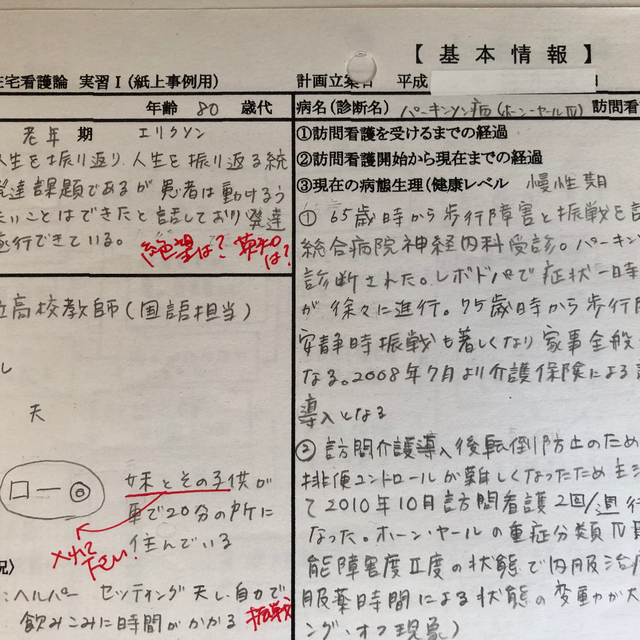 【 基 本 情 報 】
在宅看護論 実習Ⅰ(紙上事例用)
計画立案日 平成
年齢 80 歳代
病名(診断名) パーキンソン病(ホーン・ヤールⅣ) 訪問看
老年 期 エリクソン
人生を振り返り、人生を振り返る統
発達課題であるが患者は動けるう
たいことはできたと話しており発達
遂行できている。
絶望は?
英知は?
立高校教師(国語担当)
レ
夫
妹とその子供が
車で20分の所に
住んでいる
メグに
下さい!
況)
:ヘルパー セッティング 夫レ自力で
飲みこみに時間がかかる
振戦
①訪問看護を受けるまでの経過
②訪問看護開始から現在までの経過
③現在の病態生理(健康レベル 慢性期
① 65歳時から歩行障害と振戦を
総合病院神経内科受診。パーキン
診断された。レボドパで症状一時
が徐々に進行。75歳時から歩行
安静時振戦も著しくなり家事全般
なる。2008年7月より介護保険による
導入となる
② 訪問介護導入後転倒防止のため
排便コントロールが難しくなったため主
て2010年10月訪問看護2回/週行
なった。ホーン・ヤールの重症分類Ⅳ
能障害度Ⅱ度の状態で内服治
服薬時間による状態の変動が大
ング・オフ現象)